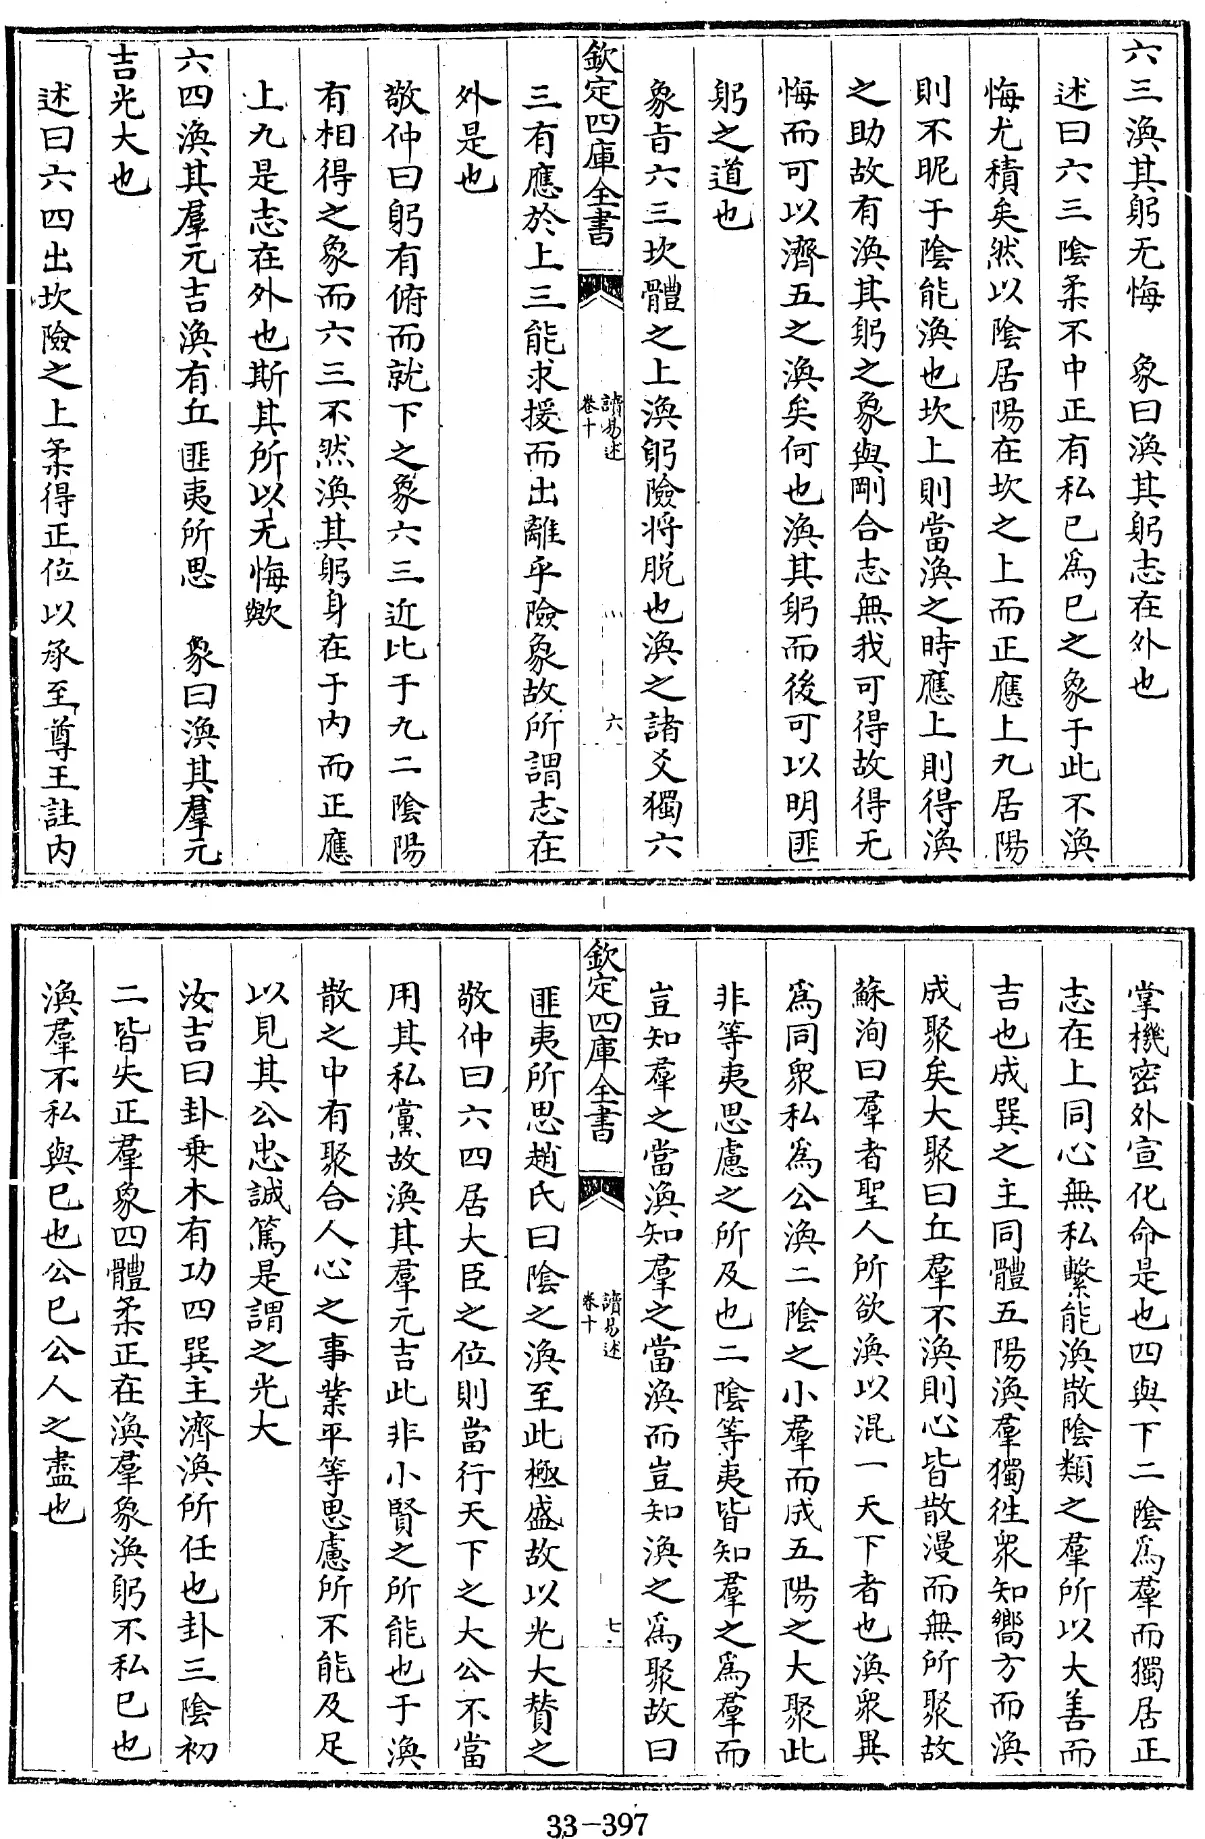 六三渙其躬无悔　象曰渙其躬志在外也
述曰六三陰柔不中正有私已為已之象于此不渙
悔尤積矣然以陰居陽在坎之上而正應上九居陽
則不昵于陰能渙也坎上則當渙之時應上則得渙
之助故有渙其躬之象與剛合志無我可得故得无
悔而可以濟五之渙矣何也渙其躬而後可以明匪
躬之道也
象旨六三坎體之上渙躬險将脱也渙之諸爻獨六
欽定四庫全書
讀易述
卷十
六
三有應於上三能求援而出離乎險象故所謂志在
外是也
敬仲曰躬有俯而就下之象六三近比于九二陰陽
有相得之象而六三不然渙其躬身在于内而正應
上九是志在外也斯其所以无悔歟
六四渙其羣元吉渙有丘匪夷所思　象曰渙其羣元
吉光大也
述曰六四出坎險之上柔得正位以承至尊王註内
掌機密外宣化命是也四與下二陰為羣而獨居正
志在上同心無私繫能渙散陰類之羣所以大善而
吉也成巽之主同體五陽渙羣獨徃衆知嚮方而渙
成聚矣大聚曰丘羣不渙則心皆散漫而無所聚故
蘇洵曰羣者聖人所欲渙以混一天下者也渙衆異
為同衆私為公渙二陰之小羣而成五陽之大聚此
非等夷思慮之所及也二陰等夷皆知羣之為羣而
豈知羣之當渙知羣之當渙而豈知渙之為聚故曰
欽定四庫全書
讀易述
卷十
七
匪夷所思趙氏曰陰之渙至此極盛故以光大賛之
敬仲曰六四居大臣之位則當行天下之大公不當
用其私黨故渙其羣元吉此非小賢之所能也于渙
散之中有聚合人心之事業平等思慮所不能及足
以見其公忠誠篤是謂之光大
汝吉曰卦乗木有功四巽主濟渙所任也卦三陰初
二皆失正羣象四體柔正在渙羣象渙躬不私已也
渙羣不私與已也公已公人之盡也
33-397